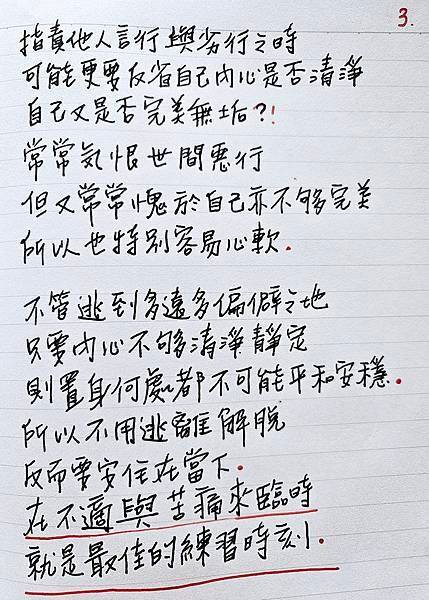 3.
指責他人言行與劣行之時
可能更要反省自己內心是否清淨
自己又是否完美無垢?!
常常気恨世間惡行
但又常常愧於自己亦不够完美
所以也特別容易心軟.
不管逃到多遠多偏僻之地
只要內心不够清淨靜定
則置身何處都不可能平和安穩.
所以不用逃離解脫
反而要安住在當下.
在不適與苦痛來臨時
就是最佳的練習時刻.